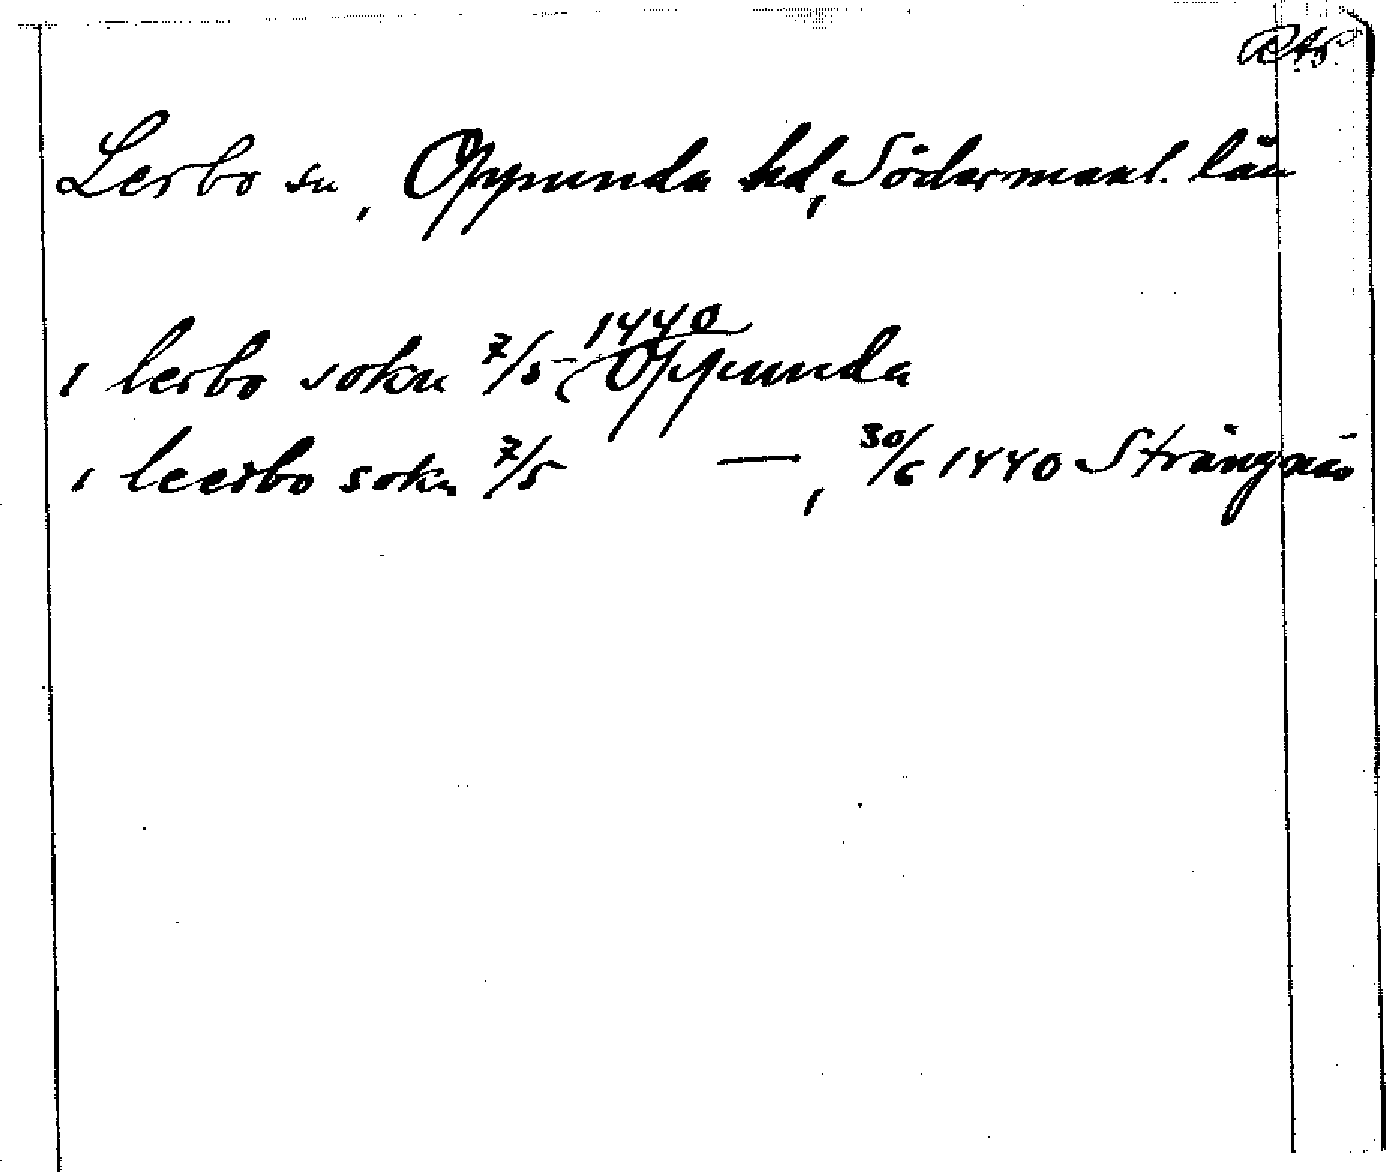 Lerbo sn, Oppunda hd, Södermanl. län
i lerbo sokn 7/5 1440 Oppunda
i leerbo sokn 7/5 — , 30/6 1440 Strängnäs